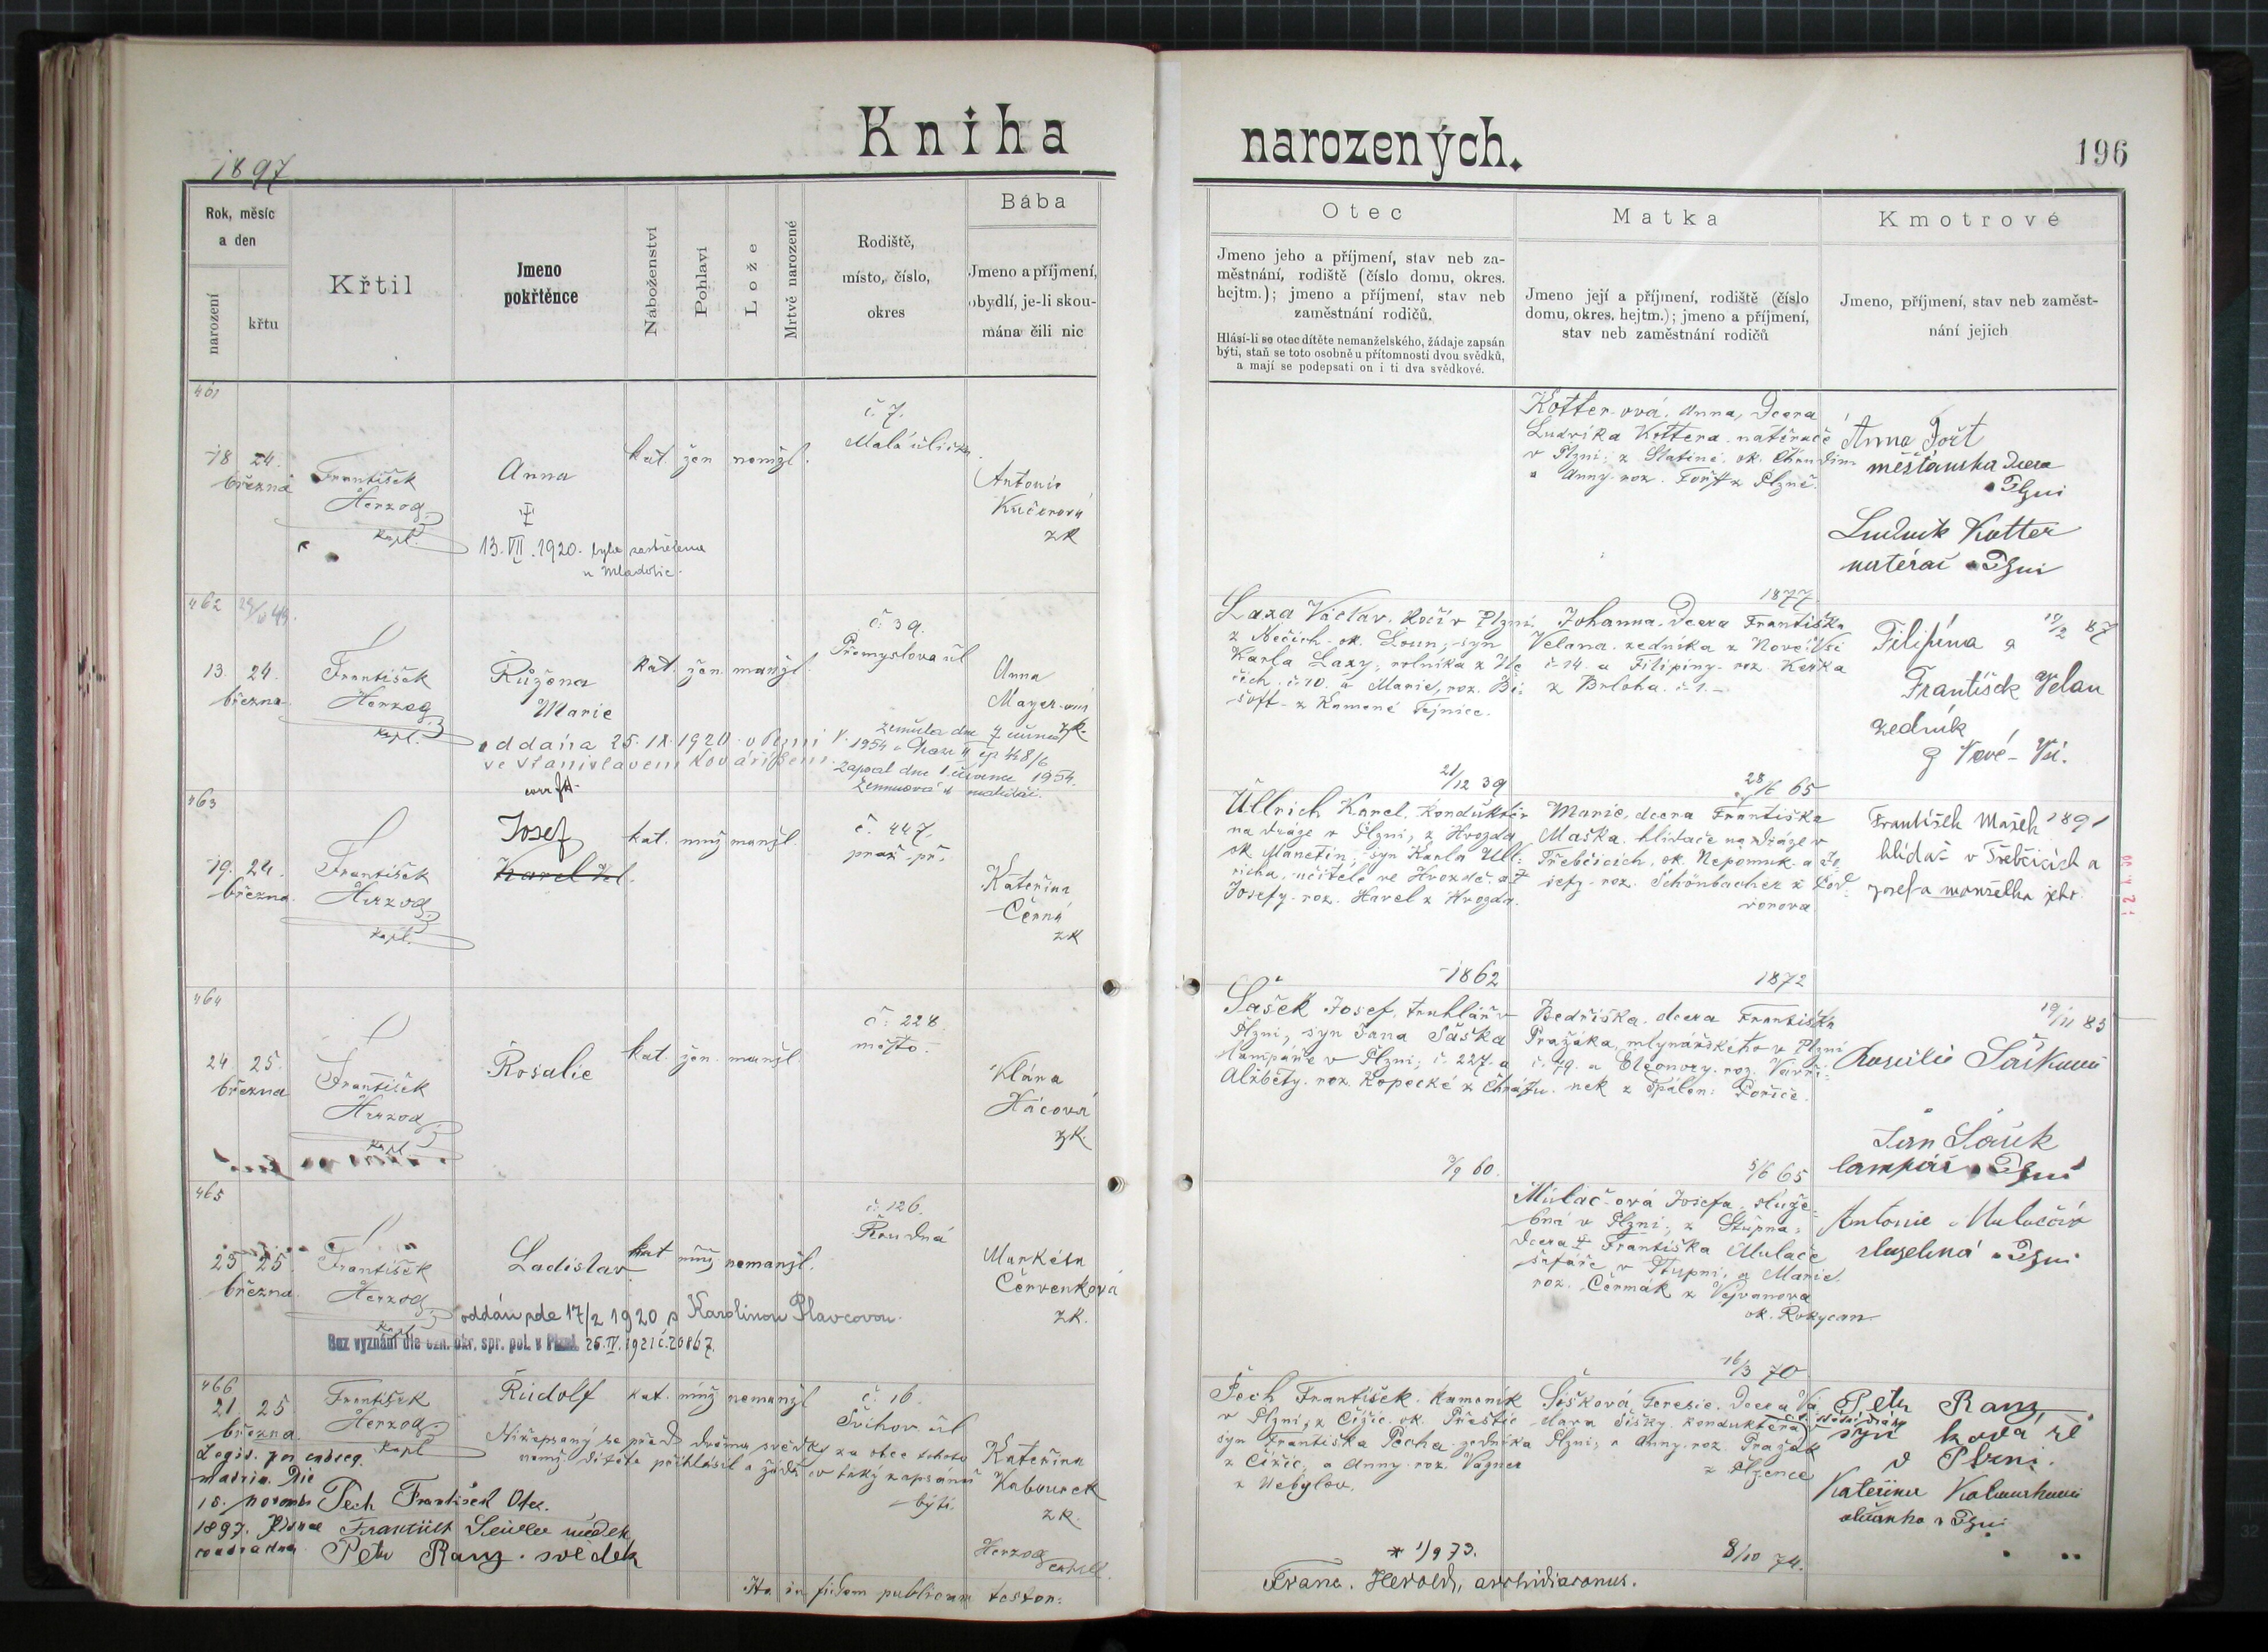 Kniha narozených.
1897
196
Rok, měsíc
a den
narození
křtu
Křtil
Jmeno
pokřtěnce
Náboženství
Pohlaví
Lože
Mrtvě narozené
Rodiště,
místo, číslo,
okres
Bába
Jmeno a příjmení,
obydlí, je-li skou-
mána čili nic
Otec
Jmeno jeho a příjmení, stav neb za-
městnání, rodiště (číslo domu, okres.
hejtm.); jmeno a příjmení, stav neb
zaměstnání rodičů.
Hlásí-li se otec dítěte nemanželského, žádaje zapsán
býti, staň se toto osobně u přítomnosti dvou svědků,
a mají se podepsati on i ti dva svědkové.
Matka
Jmeno její a příjmení, rodiště (číslo
domu, okres. hejtm.); jmeno a příjmení,
stav neb zaměstnání rodičů
Kmotrové
Jmeno, příjmení, stav neb zaměst-
nání jejich
461
18 24.
března
František
Herzog
kapl.
Anna
13. VII. 1920. byla zastřelena
u Mladotic.
kat. žen nemžl.
č. 7.
Malá ulička
Antonie
Kučerová
zk
Kotter-ová Anna, dcera
Ludvíka Kottera natěrače
v Plzni, z Slatiné ok. Chrudim
a Anny roz. Fořt z Plzně.
Anna Fořt
měšťanska dcera
v Plzni
Ludvík Kotter
natěrač v Plzni
1877
462
13. 24.
března
František
Herzog
kapl.
Růžena
Marie
kat. žen. manžl.
č. 39.
Přemyslova ul
Anna
Mayer-ová
zk.
oddána 25. IX. 1920 v Plzni
se Stanislavem Kovaříkem.
Zemřela dne 7 února
1954
Zapsal dne 1. června 1954.
Laxa Václav, kočí v Plzni
z Nečich ok. Loun, syn
Karla Laxy, rolníka z Ne
čich č. 10. a Marie, roz. Bi-
šoft z Kamené Tejnice.
Johanna, dcera Františka
Velana, zedníka z Nové Vsi
č. 14. a Filipiny roz. Kerka
z Brloha č. 1.
Filipína a
František Velan
zedník
z Nové-Vsi.
21/12 39
28/6 65
463
19. 24.
března
František
Herzog
kapl.
Josef
kat. muž manžl.
č. 447.
praž. př.
Kateřina
Černá
zk
Üllrich Karel, konduktér
na dráze v Plzni, z Hvozda
ok Manetín, syn Karla Ull-
richa, učitele ve Hvozdě a
Josefy roz. Havel z Hvozda.
Marie, dcera Františka
Maška, hlídače na dráze v
Třebčicích, ok. Nepomuk a Jo-
sefy roz. Schönbacher z
František Mašek 1891
hlídač v Třebčicích a
Josefa manželka jeho
1862
1872
464
24 25.
března
František
Herzog
kapl.
Rosalie
kat. žen. manžl.
č. 228
město.
Klára
Hácová
zk.
Šašek Josef, truhlář v
Plzni, syn Jana Šaška
lampáře v Plzni, č. 227. a
Alžběty roz. Kopecké z
Bedřiška, dcera Františka
Pražáka, mlynářského v Plzni
č. 79. a Eleonory roz. Vavři-
nek z Spálen. Poříčí.
19/11 83
Rosalie Šašková
Jan Šašek
lampář v Plzni
3/9 60.
5/6 65
465
23 25.
března
František
Herzog
kapl.
Ladislav
kat. muž nemanžl.
č. 126.
Proudná
Markéta
Červenková
zk.
oddán pde 17/2 1920 s Karolinou Plavcovou.
Bez vyznání dle ozn. okr. spr. pol. v Plzni. 26. IV. 1921 č. 20867.
Mulač-ová Josefa, služe-
bná v Plzni, z Stupna,
dcera Františka Mulače
šafáře v Stupni, a Marie
roz. Čermák z Vejvanova
ok. Rokycan
Antonie Mulačová
služebná v Plzni
16/3 70
466
21. 25
března
František
Herzog
kapl
Rudolf kat. muž nemanžl
č. 16
Švihov. ul
Kateřina
Kabourek
zk.
Nížepsaný se před dvěma svědky za otce tohoto
nemž. dítěte přihlásil a žádá co taký zapsánu
býti.
Legit. per subseq.
matrim. die
15. novemb
1897.
Pech František Otec.
František svědek
Petr Ranz. svědek
Herzog
Pech František, kameník
v Plzni, z Čižic ok. Přeštic
syn Františka Pecha zedníka
z Čižic, a Anny roz. Vagner
z Nebylov.
Šišková Terezie, dcera Vá-
clava Šišky, konduktéra
Plzni, a Anny roz. Pražák
z Plzence
Petr Ranz,
kovář
v Plzni.
Kateřina
v Plzni
* 1/9 73.
8/10 74.
Ita in fidem publicam testor:
Franc. Herold, archidiaconus.